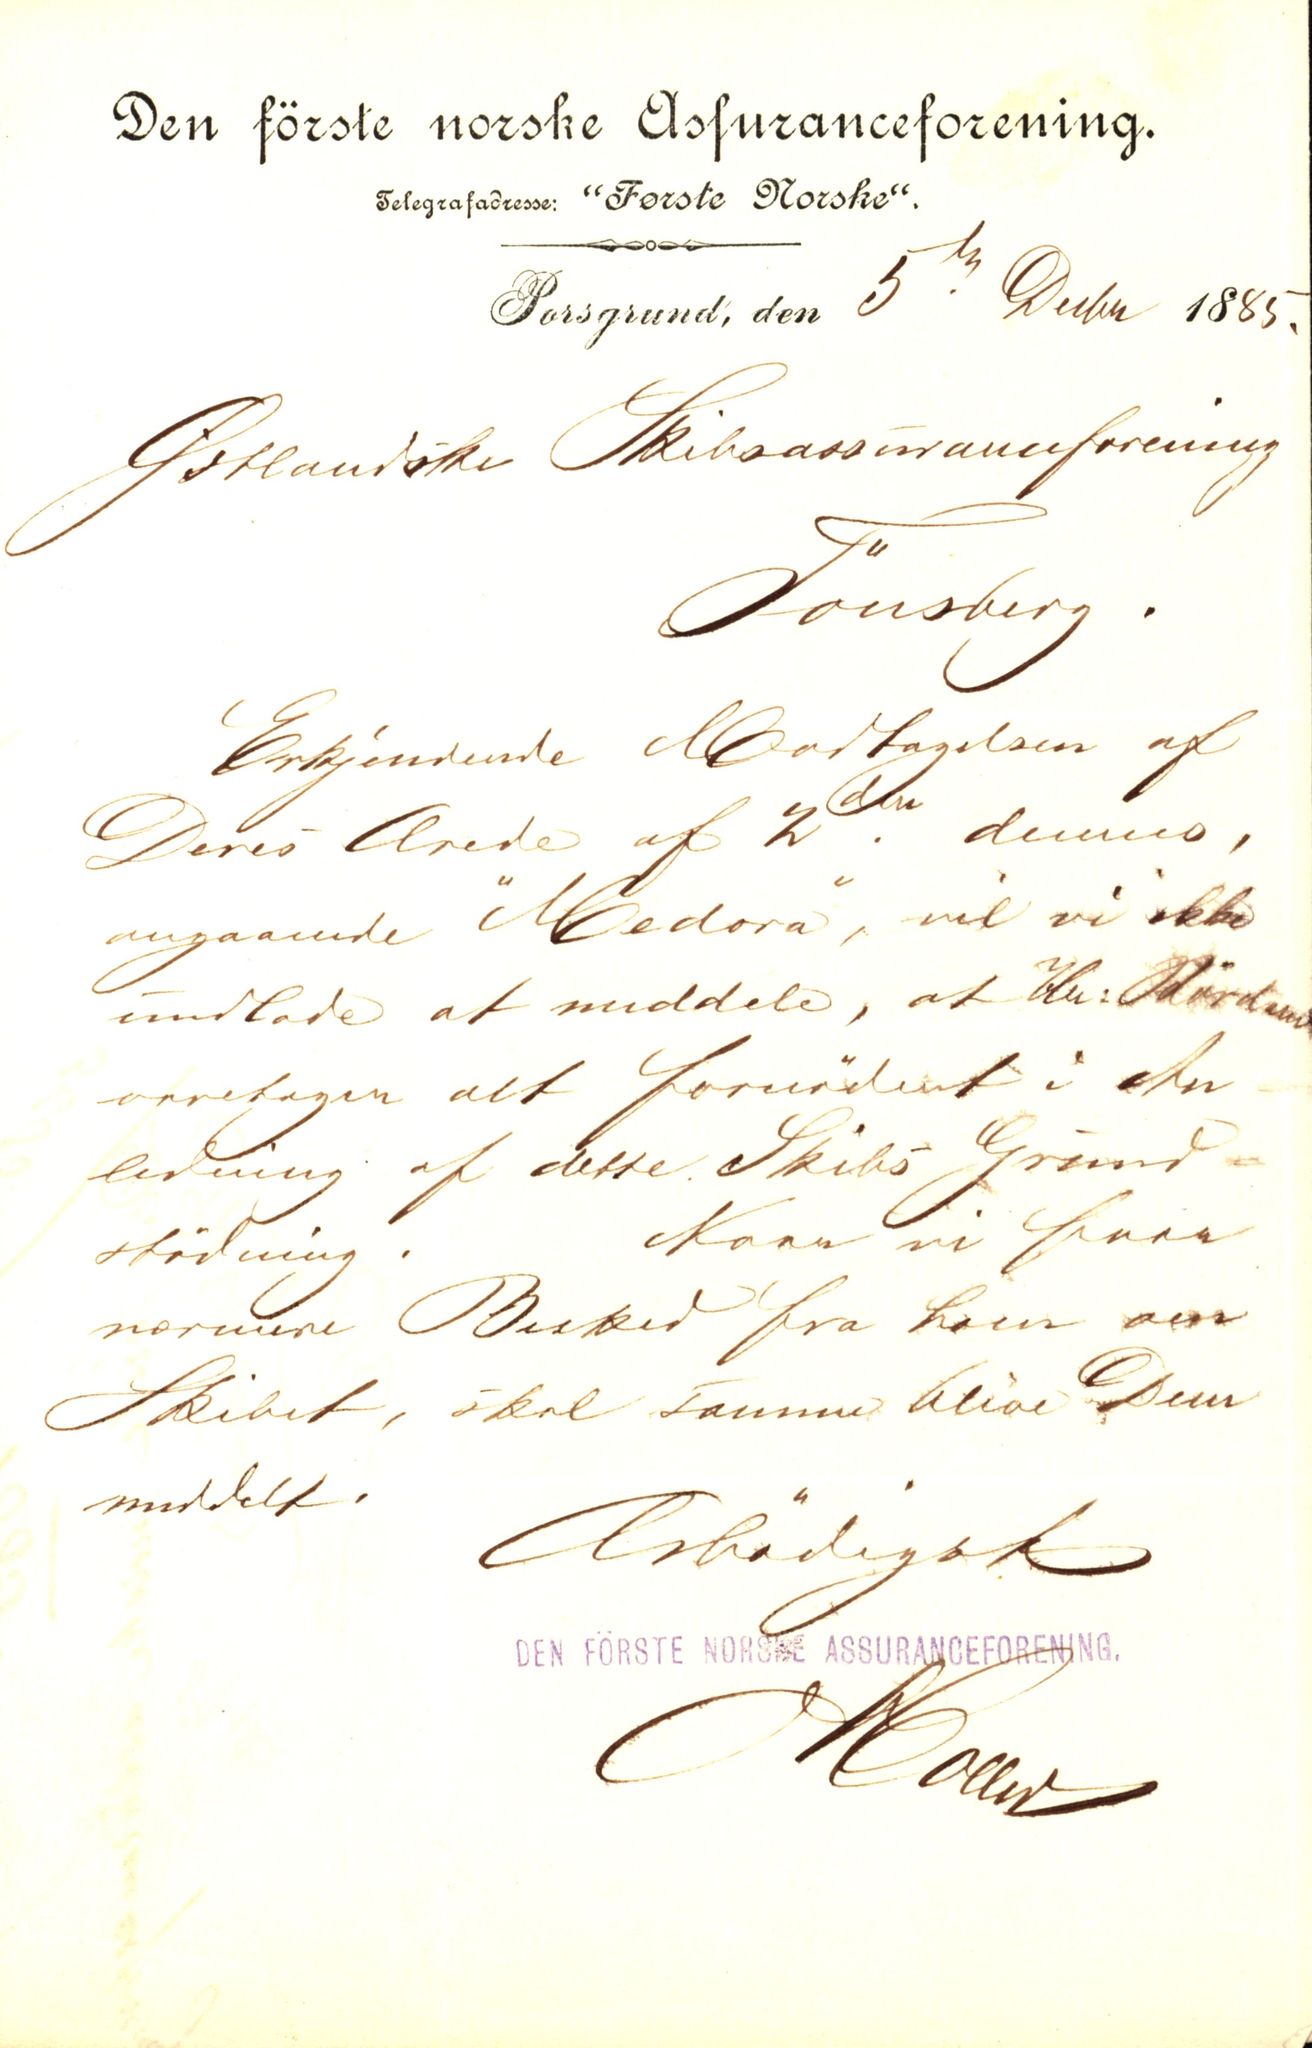 Den förste norske Assuranceforening.
Telegrafadresse: "Første Norske".
Porsgrund, den 5te Decbr 1885.
Østlandske Skibsassuranceforening
Tönsberg.
Erkjendende Modtagelsen af
Deres Ærede af 2den dennes,
angaaende "Medora", vil vi ikke
undlade at meddele, at Hr:
foretager alt fornödent i An-
ledning af dette Skibs Grund-
stödning. Naar vi faar
nærmere Besked fra ham om
Skibet, skal samme blive Dem
meddelt.
Ærbödigst
DEN FÖRSTE NORSKE ASSURANCEFORENING.
Møller